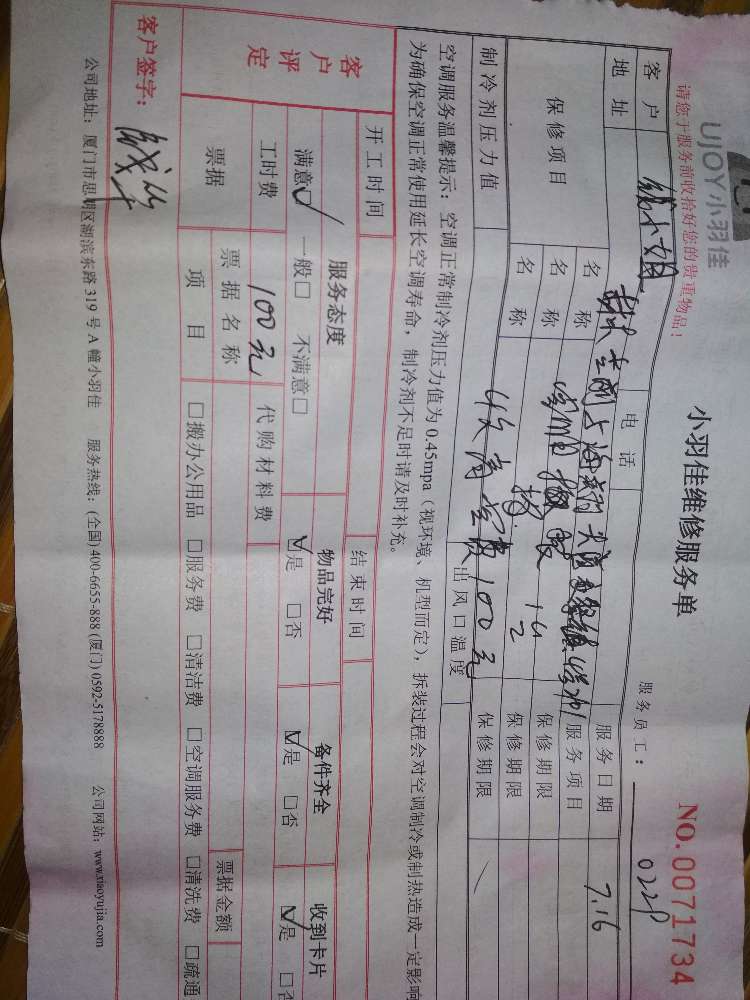 UJOY小羽佳
请您于服务前收拾好您的贵重物品!
小羽佳维修服务单
NO.0071734
服务员工:
客户 钱小姐 电话 服务日期 7.16
地址 服务项目
保修项目 名称 保修期限
名称 保修期限
名称 保修期限
制冷剂压力值 收高空费100元 出风口温度
空调服务温馨提示:空调正常制冷剂压力值为0.45mpa(视环境、机型而定),拆装过程会对空调制冷或制热造成一定影响
为确保空调正常使用延长空调寿命,制冷剂不足时请及时补充。
开工时间 结束时间
客户评定 服务态度 物品完好 备件齐全 收到卡片
满意☑ 一般□ 不满意□ ☑是 □否 ☑是 □否 ☑是 □否
工时费 100元 代购材料费
票据 票据名称 票据金额
项目 □搬办公用品 □服务费 □清洁费 □空调服务费 □清洗费 □疏通
客户签字:
公司地址:厦门市思明区湖滨东路319号A幢小羽佳 服务热线:(全国)400-6655-888(厦门)0592-5178888 公司网站:www.xiaoyujia.com